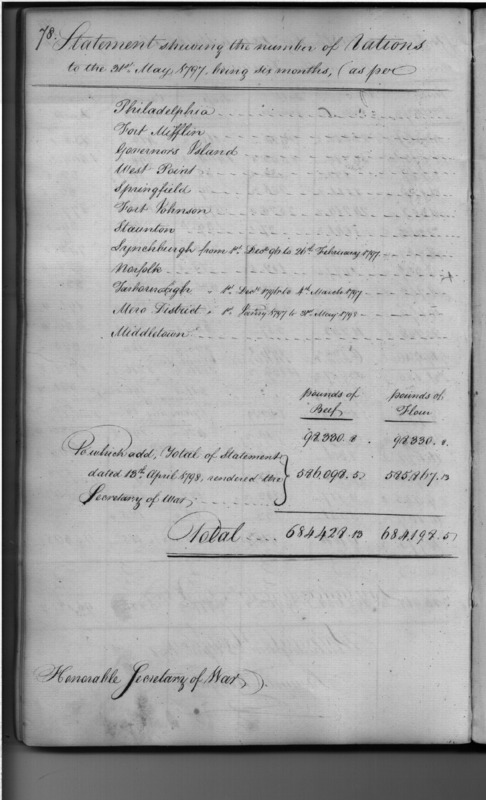 78. Statement shewing the number of Rations
to the 31st May 1797, being six months, (as per
Philadelphia
Fort Mifflin
Governors Island
West Point
Springfield
Fort Johnson
Staunton
Lynchburgh from 1st Decr 96 to 26th February 1797
Norfolk
1st Decr 1796 to 4th March 1797
Mero District " 1st Janry 1797 to 31st May 1798
Middletown
pounds of Beef pounds of Flour
98330.8. 98330.8.
To which add, Total of Statement
dated 13th April 1798, rendered the 586,098.5 585,867.13
Secretary of War,
Total 684,428.13 684,198.5
Honorable Secretary of War